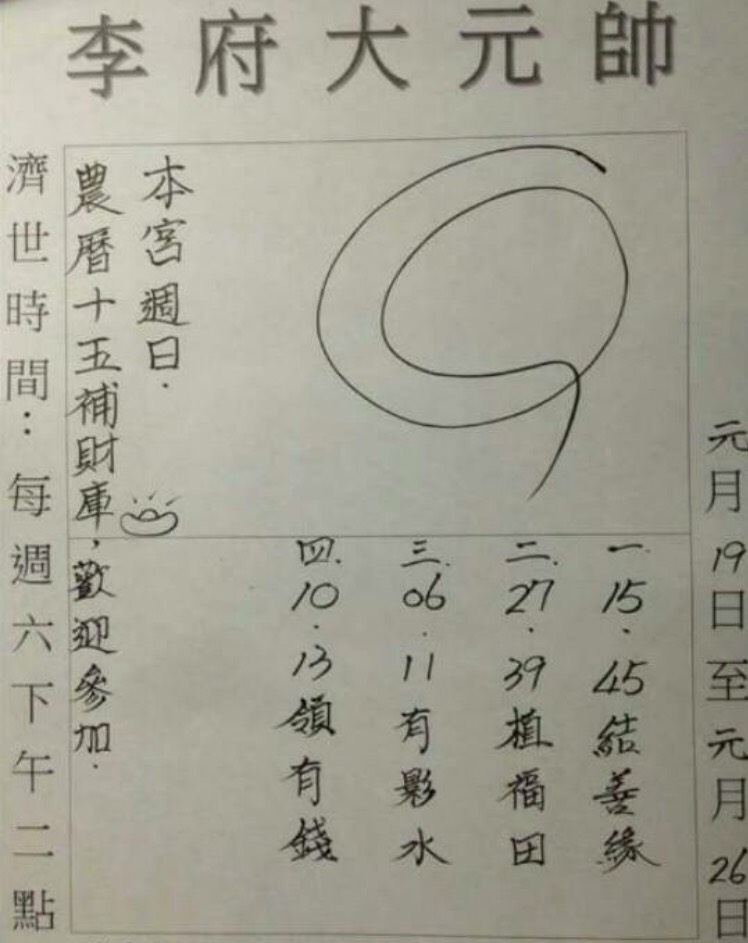 李府大元帥
元月19日至元月26日
一.15.45結善緣
二.27.39植福田
三.06.11有影水
四.10.13領有錢
本宮週日.
農曆十五補財庫，歡迎參加.
濟世時間：每週六下午二點